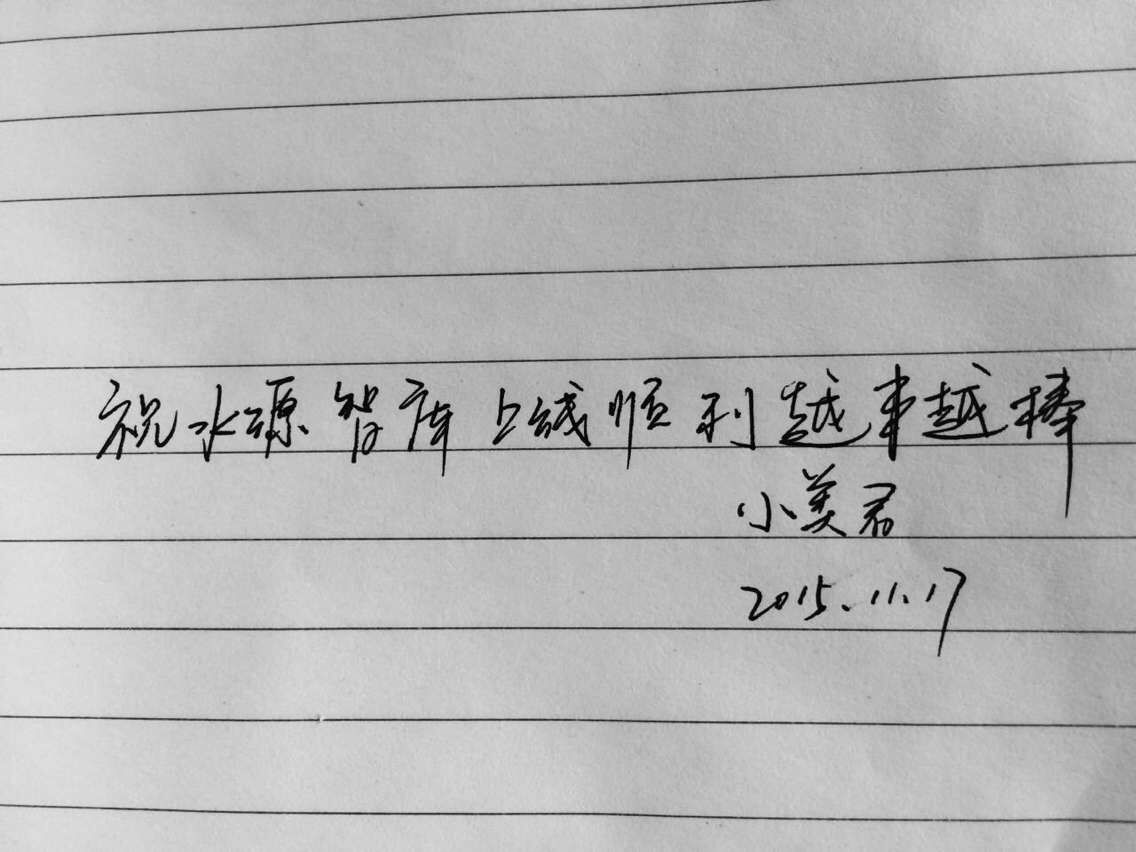 祝水源智库上线顺利越来越棒
小美君
2015.11.17